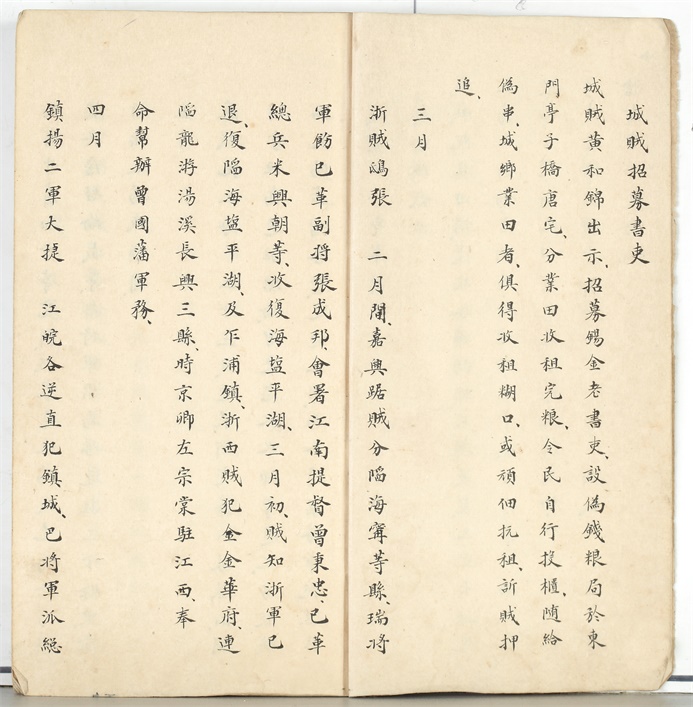 城賊招募書吏
城賊黃和錦出示、招募錫金老書吏、設偽錢粮局於東
門亭子橋唐宅、分業田收租完粮、令民自行投櫃、隨給
偽串、城鄉業田者、俱得收租糊口、或頑佃抗租、訴賊押
追、
三月
浙賊鴟張　二月間、嘉興踞賊分陷海寧等縣、瑞將
軍飭已革副將張成邦、會署江南提督曾秉忠、已革
總兵米興朝等、收復海盐平湖、三月初、賊知浙軍已
退、復陷海盐平湖、及乍浦鎮、浙西賊犯金金華府、連
陷龍游湯溪長興三縣、時京卿左宗棠駐江西、奉
命幫辦曾國藩軍務、
四月
鎮揚二軍大捷　江皖各逆直犯鎮城、巴將軍派總